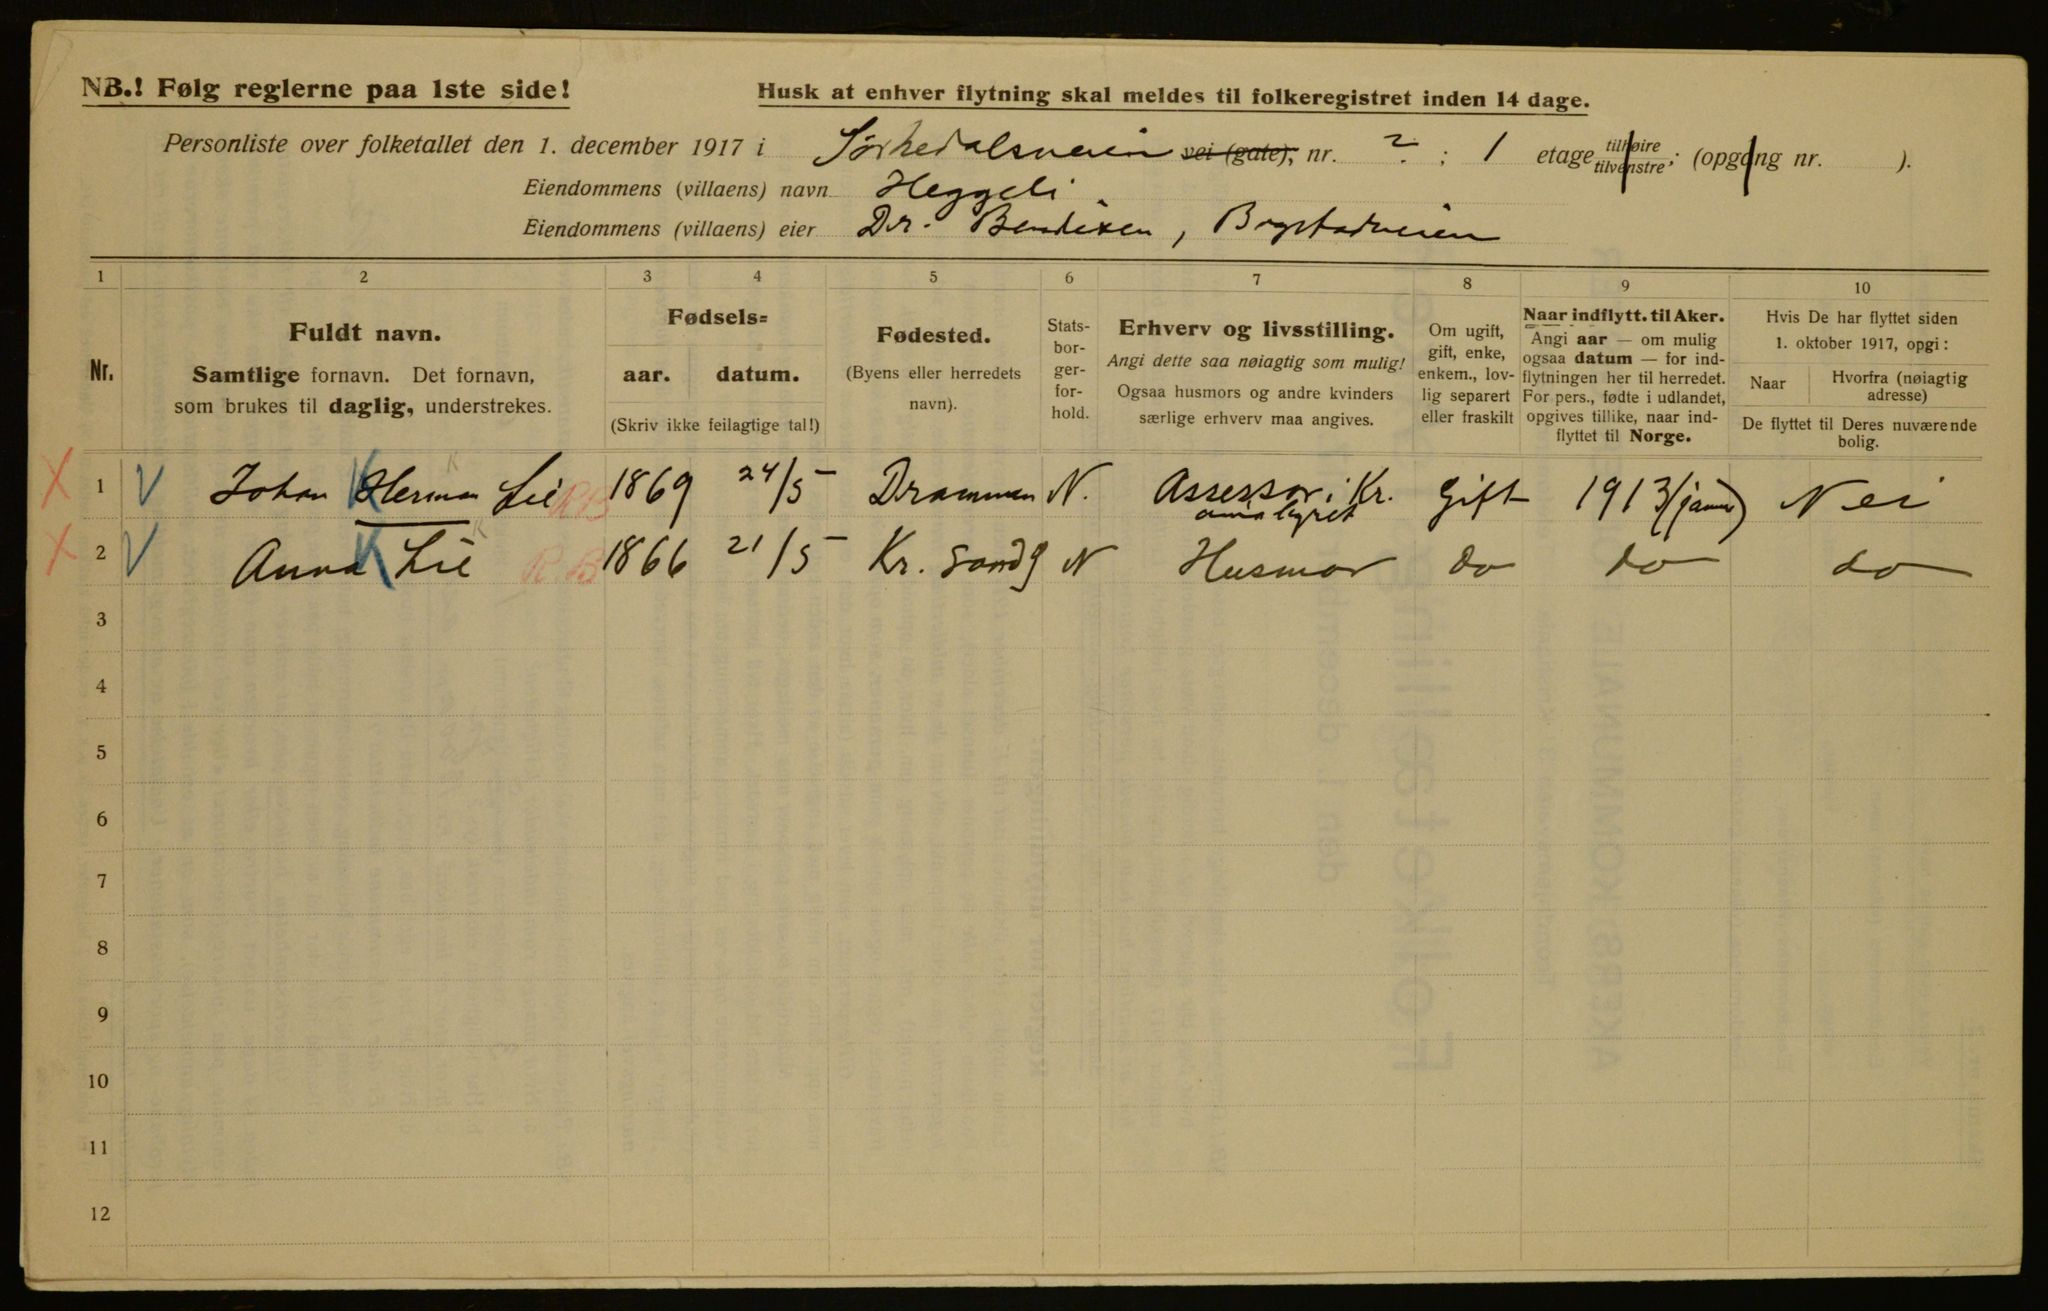 NB.! Følg reglerne paa 1ste side!
Husk at enhver flytning skal meldes til folkeregistret inden 14 dage.
Personliste over folketallet den 1. december 1917 i Sørkedalsveien vei (gate), nr. ? ; 1 etage tilhøire tilvenstre; (opgang nr. ).
Eiendommens (villaens) navn Heggeli
Eiendommens (villaens) eier Dr. Bendixen, Bogstadveien
1 2 3 4 5 6 7 8 9 10
Nr.
Fuldt navn.
Samtlige fornavn. Det fornavn,
som brukes til daglig, understrekes.
Fødsels=
aar. datum.
(Skriv ikke feilagtige tal!)
Fødested.
(Byens eller herredets
navn).
Stats-
bor-
ger-
for-
hold.
Erhverv og livsstilling.
Angi dette saa nøiagtig som mulig!
Ogsaa husmors og andre kvinders
særlige erhverv maa angives.
Om ugift,
gift, enke,
enkem., lov-
lig separert
eller fraskilt
Naar indflytt. til Aker.
Angi aar — om mulig
ogsaa datum — for ind-
flytningen her til herredet.
For pers., fødte i udlandet,
opgives tillike, naar ind-
flyttet til Norge.
Hvis De har flyttet siden
1. oktober 1917, opgi:
Naar
Hvorfra (nøiagtig
adresse)
De flyttet til Deres nuværende
bolig.
X 1 V Johan K Herman Lie RB 1869 24/5 Drammen N. Assessor i Kr. Gift 1913 (janur) Nei
X 2 V Anna K Lie RB 1866 21/5 Kr. sand N Husmor do do do
3
4
5
6
7
8
9
10
11
12